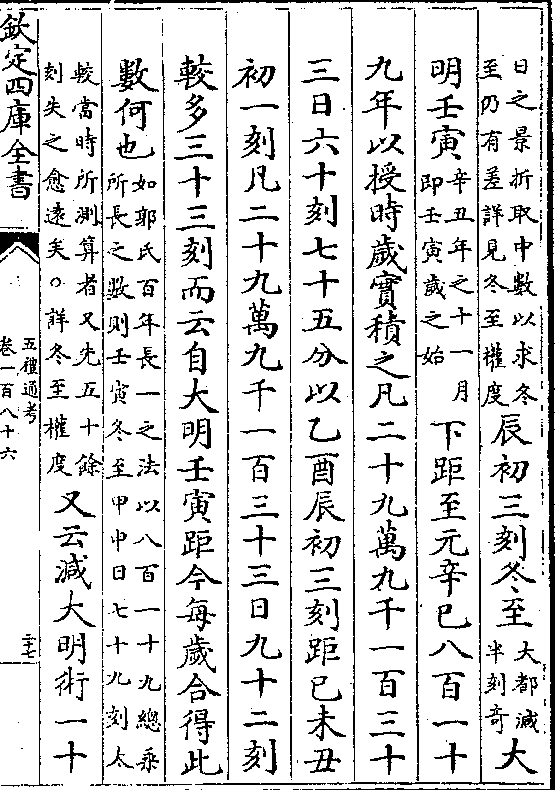 日之景折取中數以求冬
至仍有差詳見冬至權度
辰初三刻冬至
大都減
半刻奇
大
明壬寅
辛丑年之十一月
即壬寅歲之始
下距至元辛巳八百一十
九年以授時歲實積之凡二十九萬九千一百三十
三日六十刻七十五分以乙酉辰初三刻距己未丑
初一刻凡二十九萬九千一百三十三日九十二刻
較多三十三刻而云自大明壬寅距今每歲合得此
數何也
如郭氏百年長一之法以八百一十九總乘
所長之數則壬寅冬至甲申日七十九刻太
較當時所測算者又先五十餘
刻失之愈遠矣○詳冬至權度
又云減大明術一十
欽定四庫全書
五禮通考
卷一百八十六